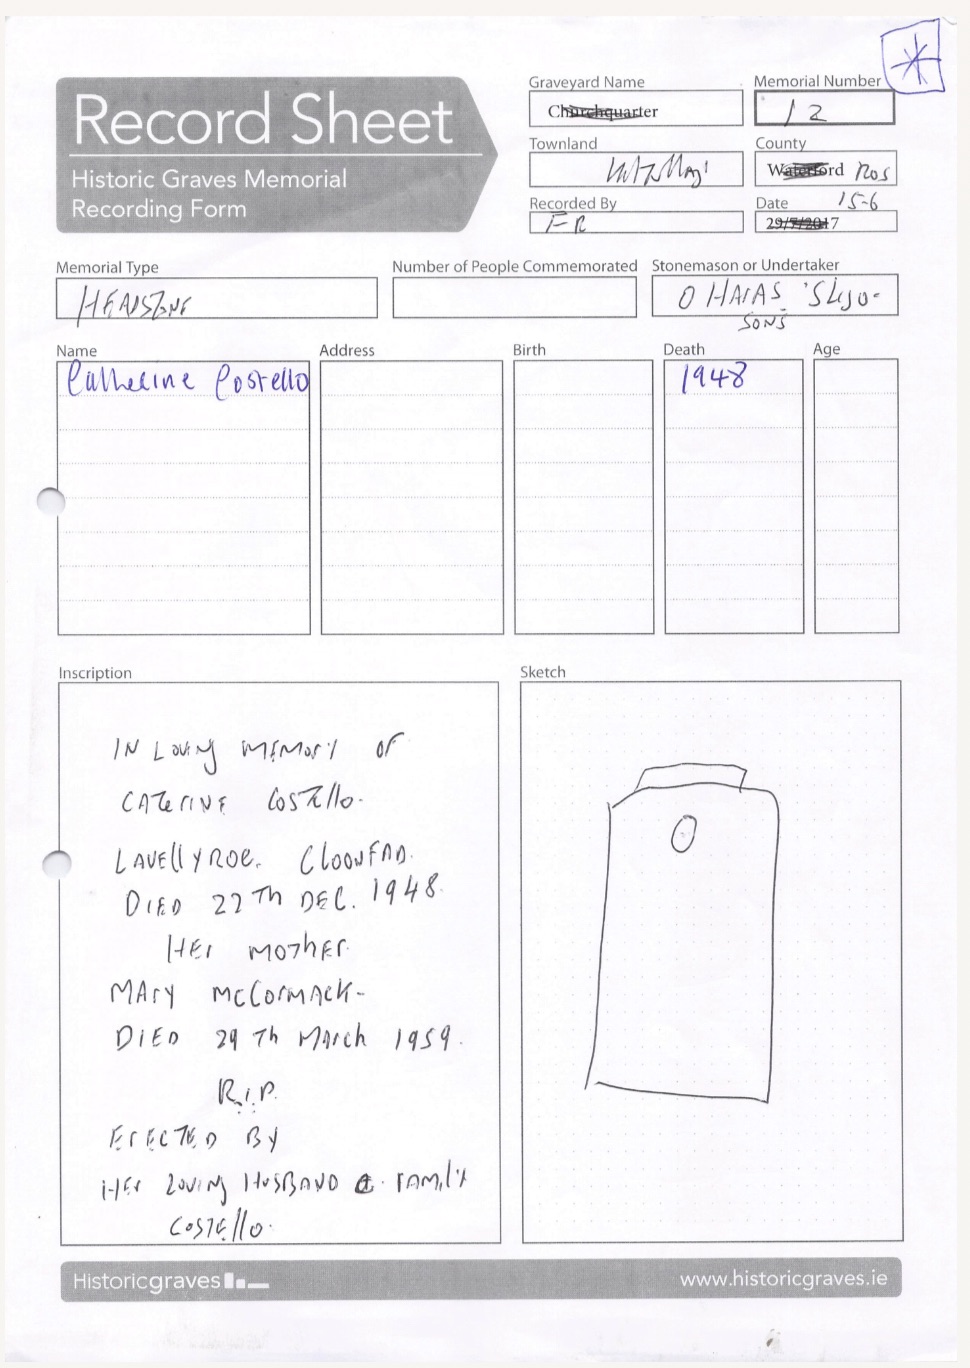 Record Sheet
Historic Graves Memorial
Recording Form
Graveyard Name
Churchquarter
Memorial Number
12
Townland
County
Waterford Ros
Recorded By
FR
Date 15-6
29/7/2017
Memorial Type
HEADSTONE
Number of People Commemorated
Stonemason or Undertaker
O HARAS 'Sligo-
SONS
Name
Address
Birth
Death
Age
Catherine Costello
1948
Inscription
Sketch
IN LOVING MEMORY OF
CATERINE COSTELLO.
LAVEllYROE. CLOONFAD.
DIED 22TH DEC. 1948
HER MOTHER
MARY MCCORMACK-
DIED 29 Th MArch 1959.
R.I.P.
ERECTED BY
HER LOVING HUSBAND & FAMILY
COSTELLO.
Historicgraves
www.historicgraves.ie